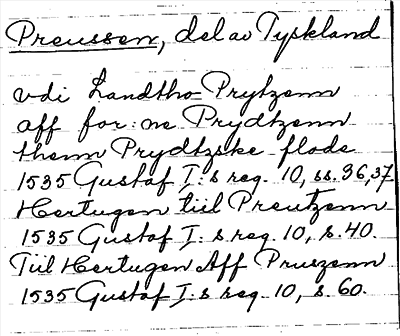 Preussen, del av Tyskland
vdi Landtho Prytzenn
aff for:ne Prydtzenn
thenn Prydtzske flode
1535 Gustaf I:s reg. 10, ss. 36, 37.
Hertugen tiil Preutzenn
1535 Gustaf I:s reg. 10, s. 40.
Tiil Hertugen Aff Pruszenn
1535 Gustaf I:s reg. 10, s. 60.